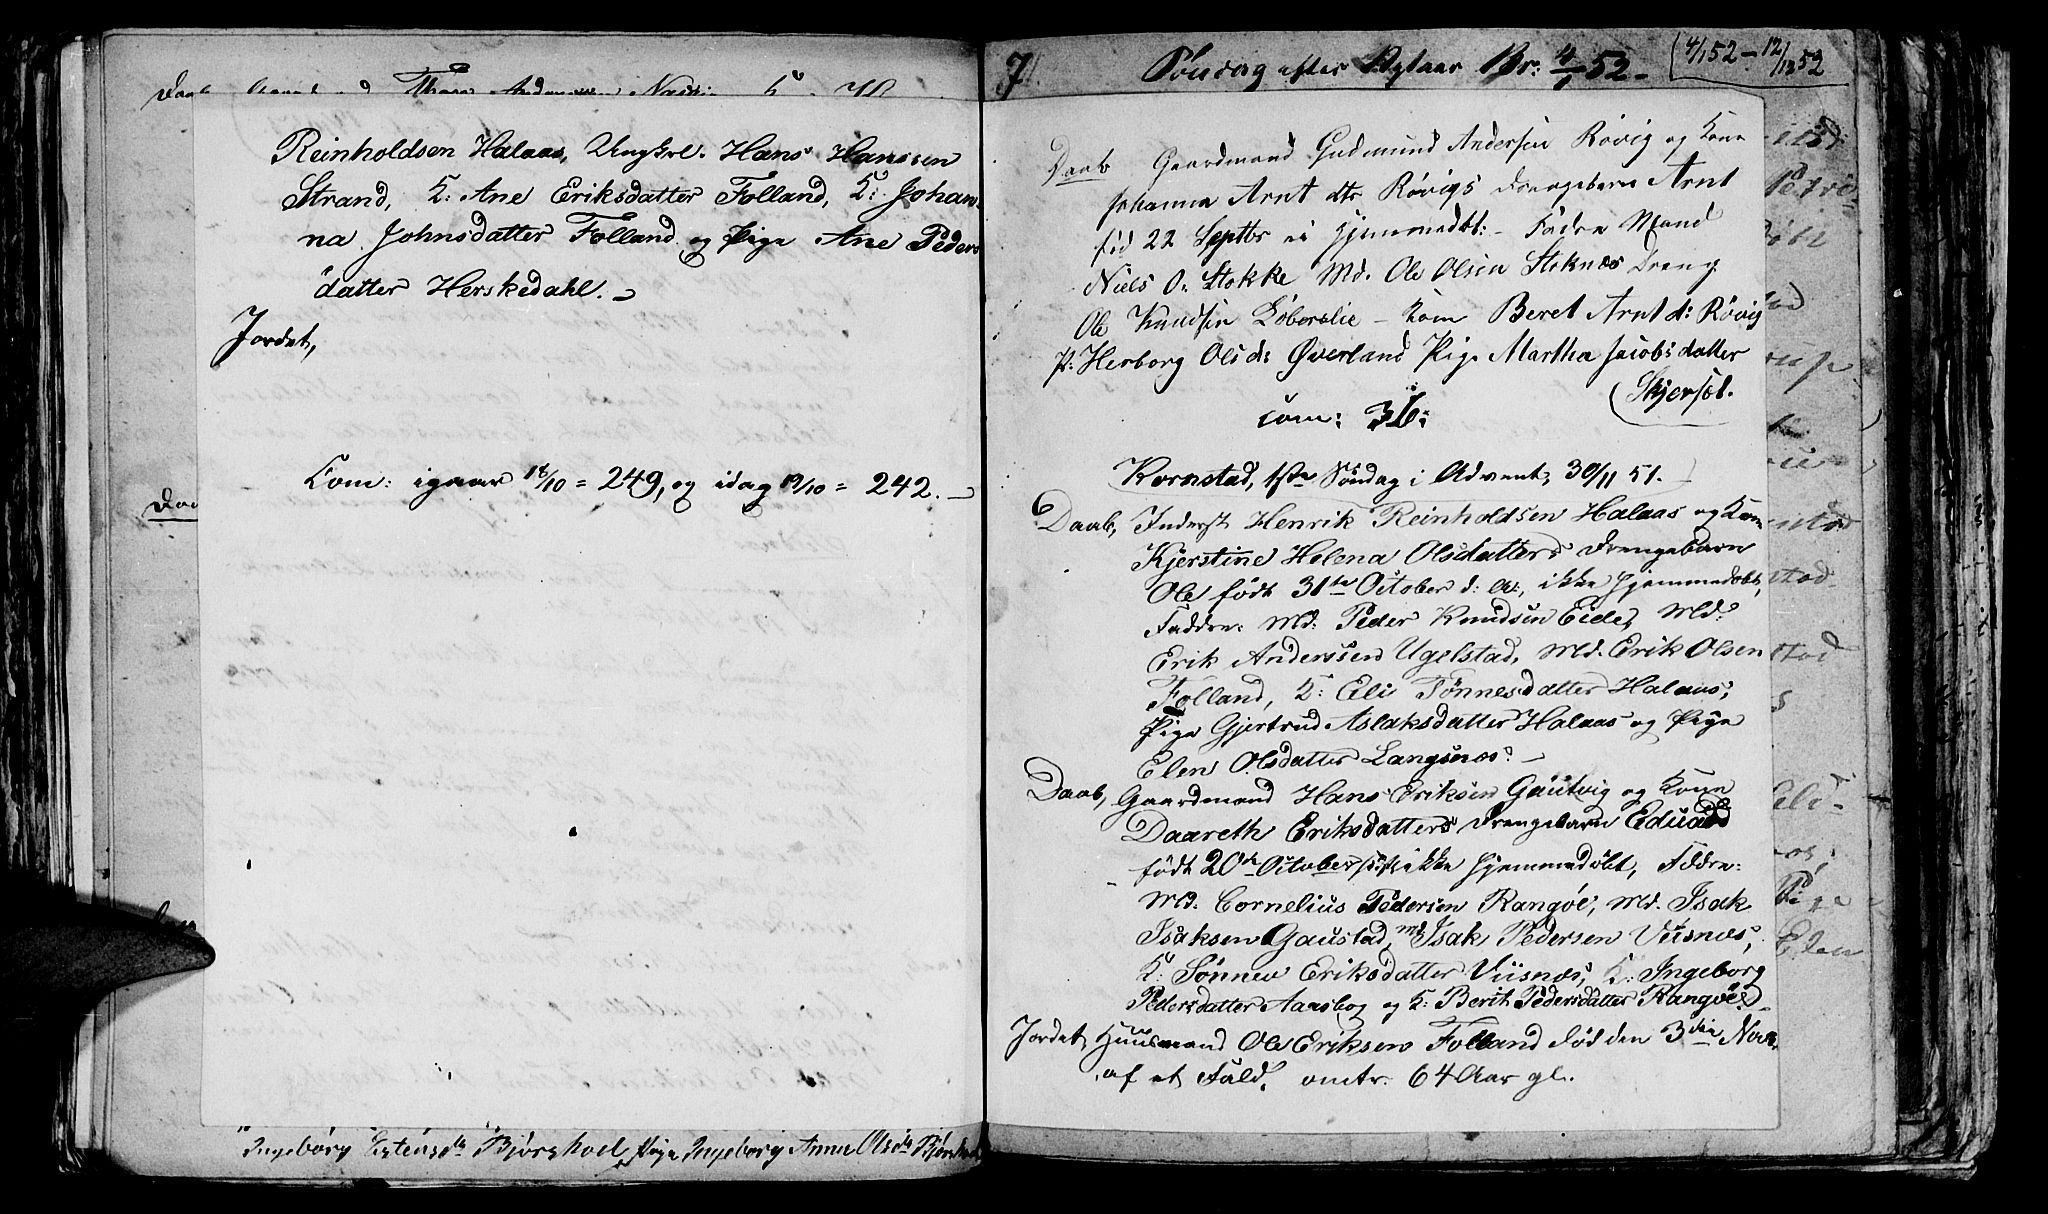 Reinholdsen Halaas, Ungkrl. Hans Hanssen
Strand, K: Ane Eriksdatter Folland, K: Johan-
na Johnsdatter Folland og Pige Ane Peders
datter Herskedahl.
Jordet,
Com: igaar 18/10 = 249, og idag 19/10 = 242.
Ingebørg Estensdtr Bjørghoel Pige Ingeborg Anne Olsdtr
71. Söndag efter Nytaar Br: 4/1 52 -
(4/1 52 - 12/12 52
Daab Gaardmand Gudmund Andersen Rövig og Kone
Johanna Arnt dtr Rövigs Drengebarn Arnt
fød 22 Septbr ei hjemmedbt: - Fadre Mand
Niels O: Stokke Md. Ole Olsen Stoknæs Dreng
Ole Knudsen - Kone Beret Arnt d: Rövig
P: Herborg Ols d: Øverland Pige Martha Jacobsdatter
Skjersæt.
Com: 36:
Kornstad, 1ste Søndag i Advent, 30/11 51.
Daab, Inderst Henrik Reinholdsen Halaas og Kone
Kjerstine Helena Olsdatters Drengebarn
Ole födt 31te October d: A:, ikke hjemmedøbt,
Faddre: Md: Peder Knudsen Eide, Md:
Erik Anderssen Ugelstad, Md. Erik Olsen
Folland, K: Eli Tønnesdatter Halaas,
Pige Gjertrud Aslaksdatter Halaas og Pige
Elen Olsdatter Langenæs. -
Daab, Gaardmand Hans Eriksen Gautvig og Kone
Daareth Eriksdatters Drengebarn Eduard
født 20de October ikke hjemmedøbt, Fddre:
Md. Cornelius Pedersen Rangöe, Md. Isak
Isaksen Gaustad, Md Isak Pedersen Viisnæs,
K: Sønnev Eriksdatter Viisnæs, K: Ingeborg
Pedersdatter Aarsbog og K: Berit Pedersdatter Rangöe.
Jordet, Huusmand Ole Eriksen Folland død den 3die Novr.
af et Fald, omtr. 64 Aar gl.